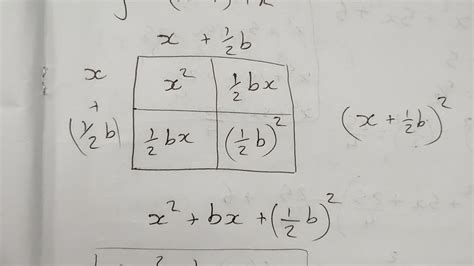 x + 1/2 b
x
x²
1/2 bx
+
(1/2 b)
1/2 bx
(1/2 b)²
(x + 1/2 b)²
x² + bx + (1/2 b)²